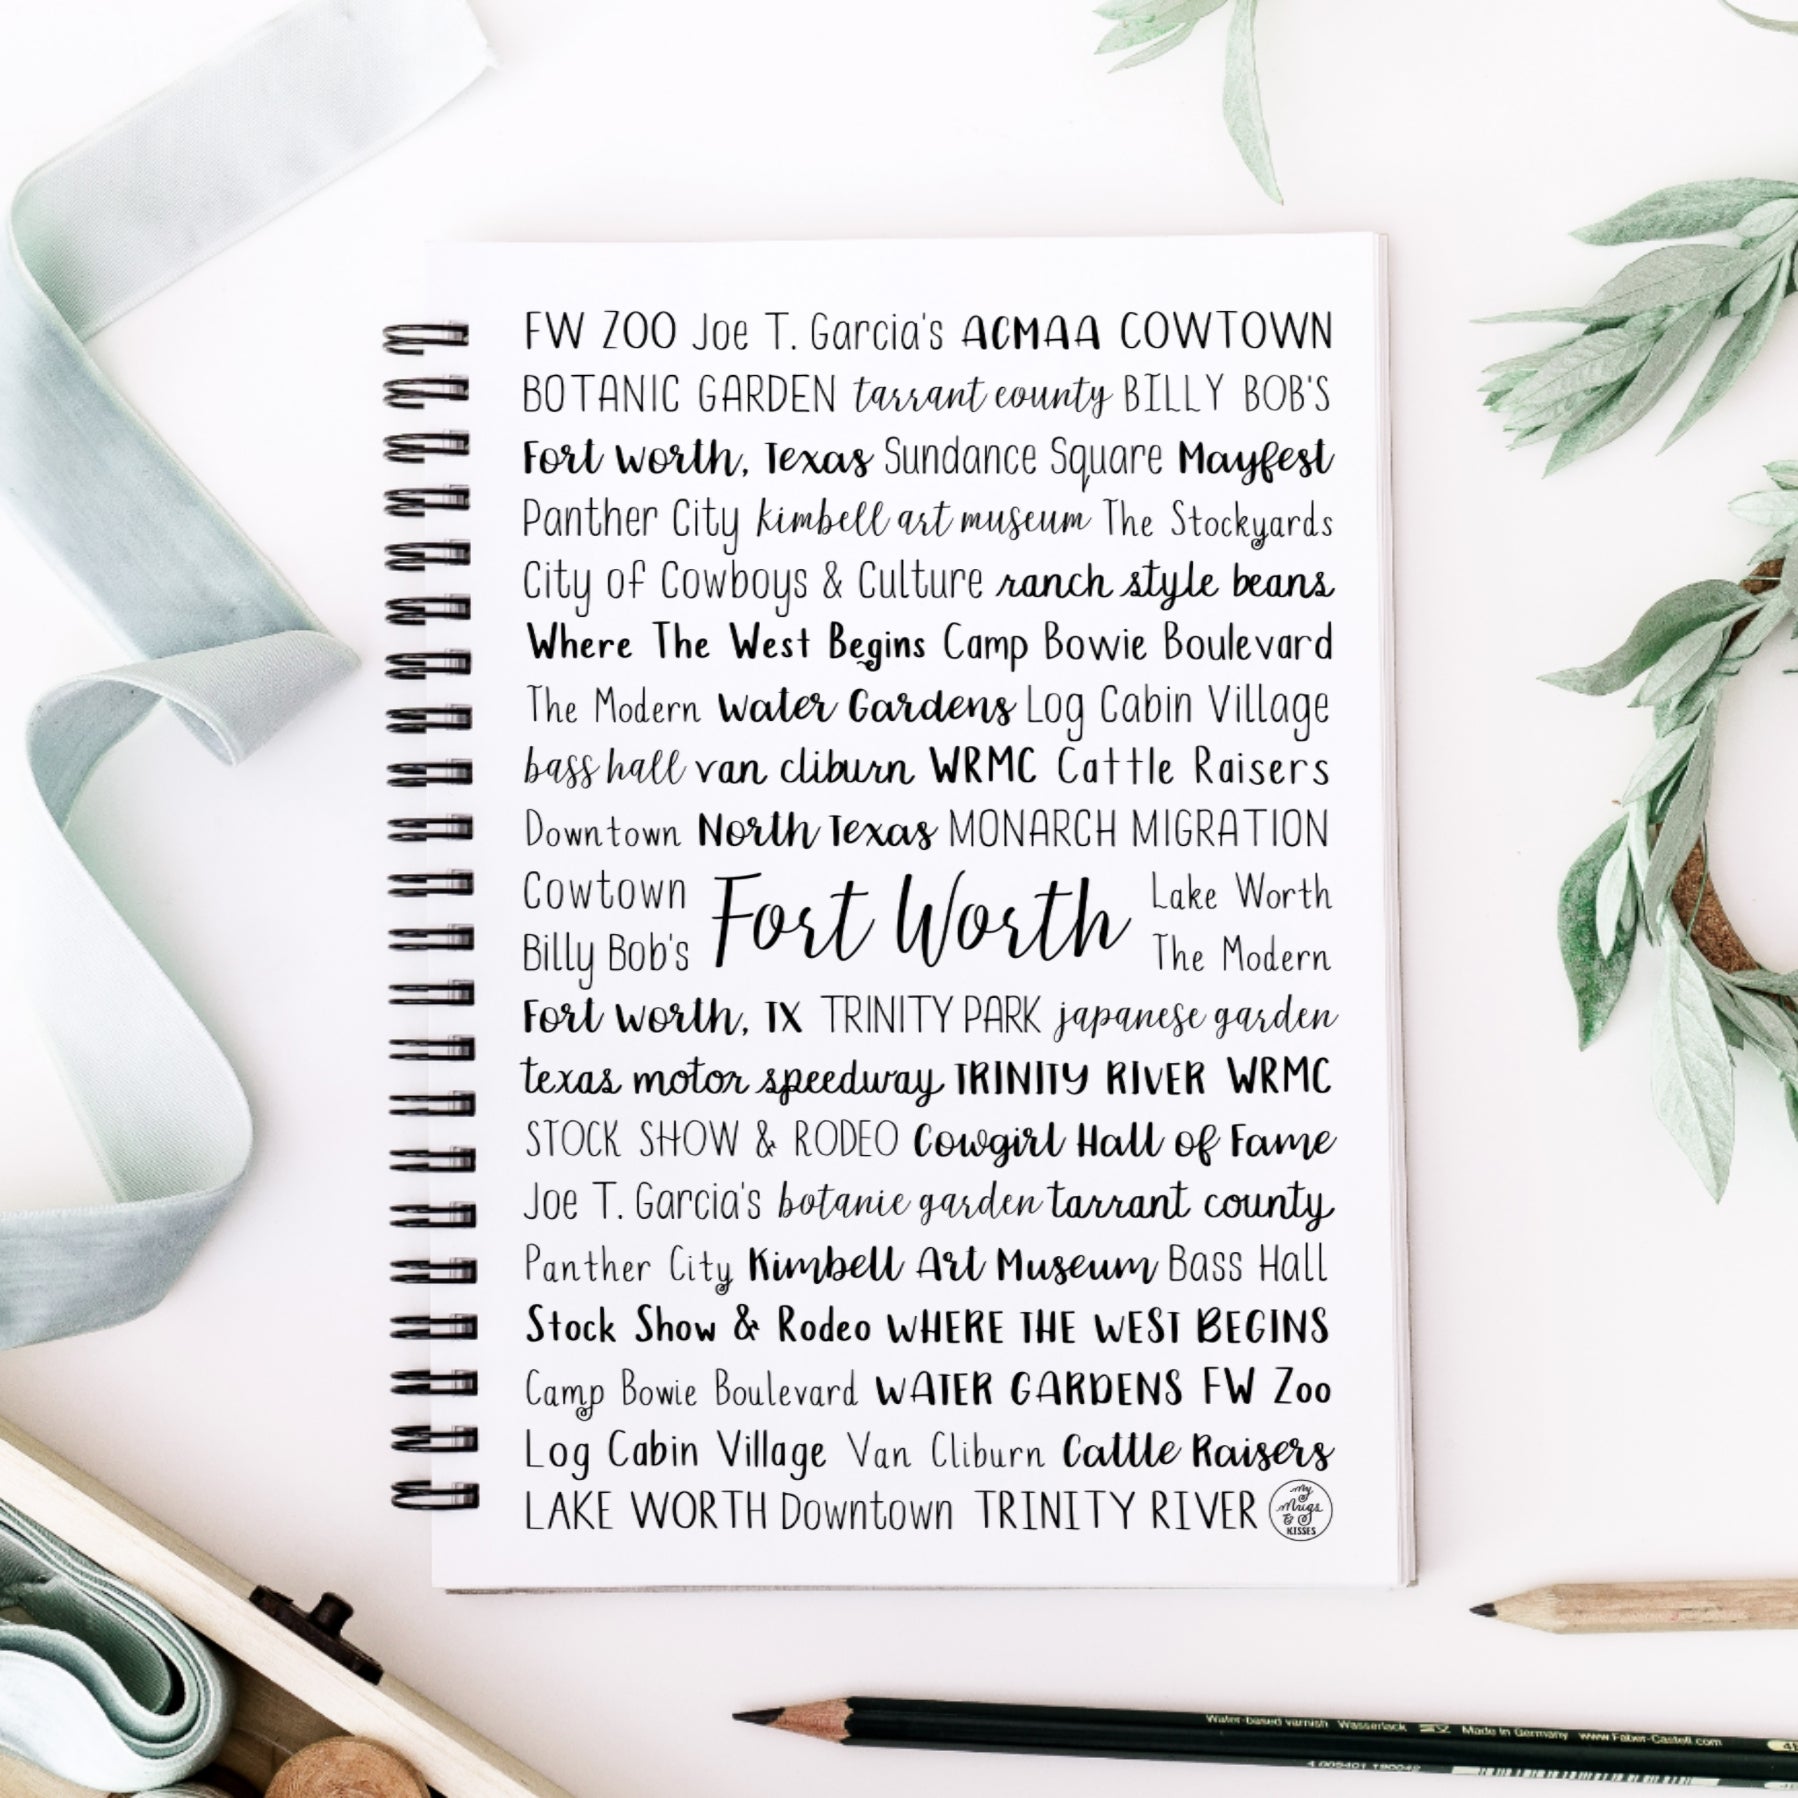 FW ZOO Joe T. Garcia's ACMAA COWTOWN
BOTANIC GARDEN tarrant county BILLY BOB'S
Fort Worth, Texas Sundance Square Mayfest
Panther City kimbell art museum The Stockyards
City of Cowboys & Culture ranch style beans
Where The West Begins Camp Bowie Boulevard
The Modern Water Gardens Log Cabin Village
bass hall van cliburn WRMC Cattle Raisers
Downtown North Texas MONARCH MIGRATION
Cowtown
Billy Bob's
Fort Worth
Lake Worth
The Modern
Fort Worth, TX TRINITY PARK japanese garden
texas motor speedway TRINITY RIVER WRMC
STOCK SHOW & RODEO Cowgirl Hall of Fame
Joe T. Garcia's botanic garden tarrant county
Panther City Kimbell Art Museum Bass Hall
Stock Show & Rodeo WHERE THE WEST BEGINS
Camp Bowie Boulevard WATER GARDENS FW Zoo
Log Cabin Village Van Cliburn Cattle Raisers
LAKE WORTH Downtown TRINITY RIVER
my
Mugs
&
KISSES
Water-based varnish Wasserlack Made in Germany www.Faber-Castell.com
4 005401 190042